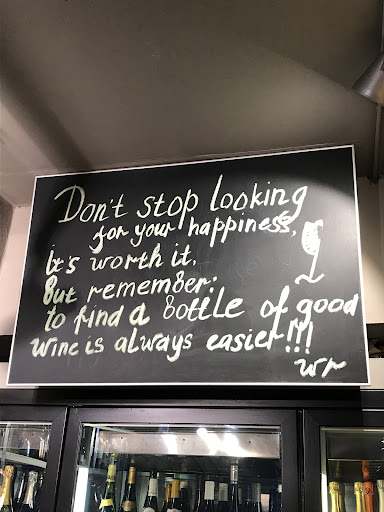 Don't stop looking
for your happiness,
it's worth it.
But remember:
to find a bottle of good
wine is always easier!!!